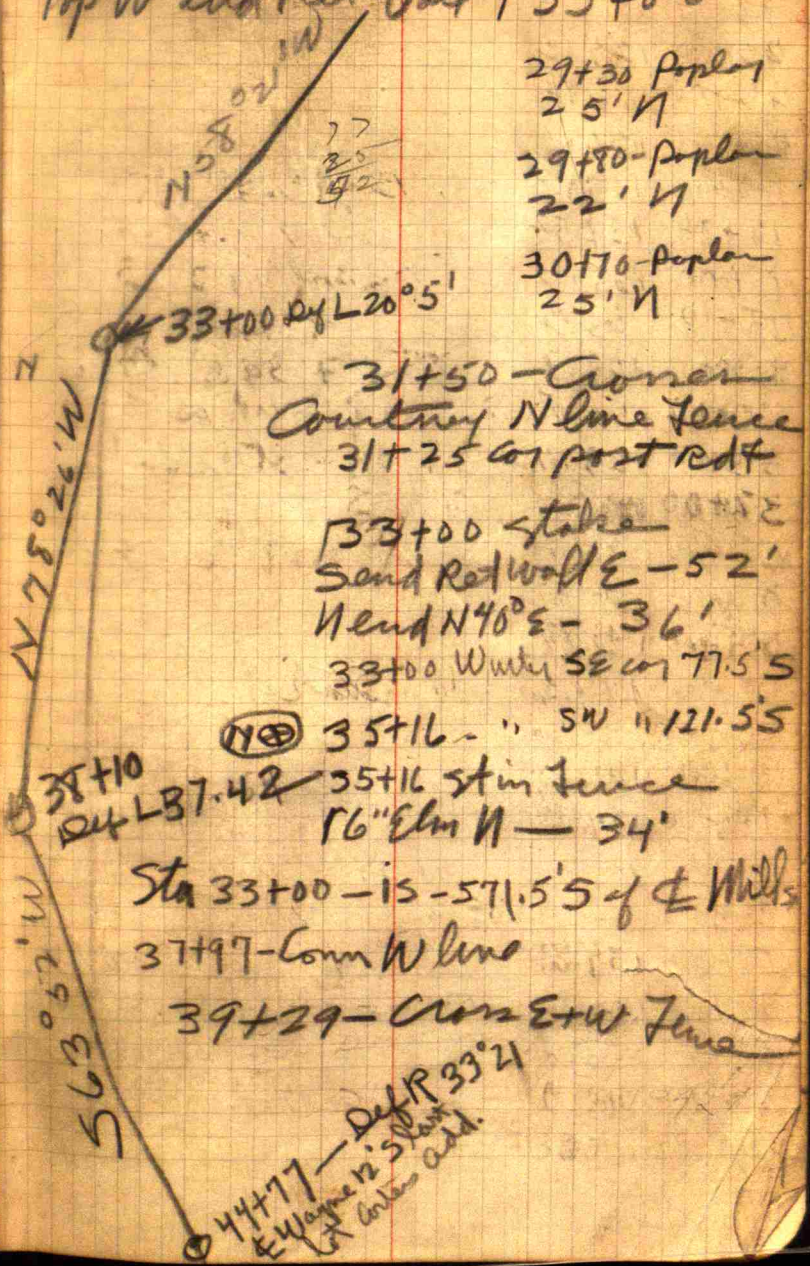 Top W end Ret
N 58° 21' W
29+30 Poplar
25' N
77
25
52
29+80 - Poplar
22' N
30+70 - Poplar
25' N
33+00 Def L 20° 5'
31+50 - Crosses
Courtney N line Fence
31+25 Cor post Rdt
N 78° 26' W
33+00 Stake
S end Ret Wall E - 52'
N end N 40° E - 36'
33+00 SE cor 77.5' S
N 35+16 - " SW " 121.5' S
38+10
Def L 37.42
35+16 St in Fence
16" Elm N — 34'
Sta 33+00 - is - 571.5' S of ℄ Mills
37+97 - Conn W line
S 63° 52' W
39+29 - Cross E+W Fence
44+77 — Def R 33° 21
℄ Wayne 12' S last
Lot Add.